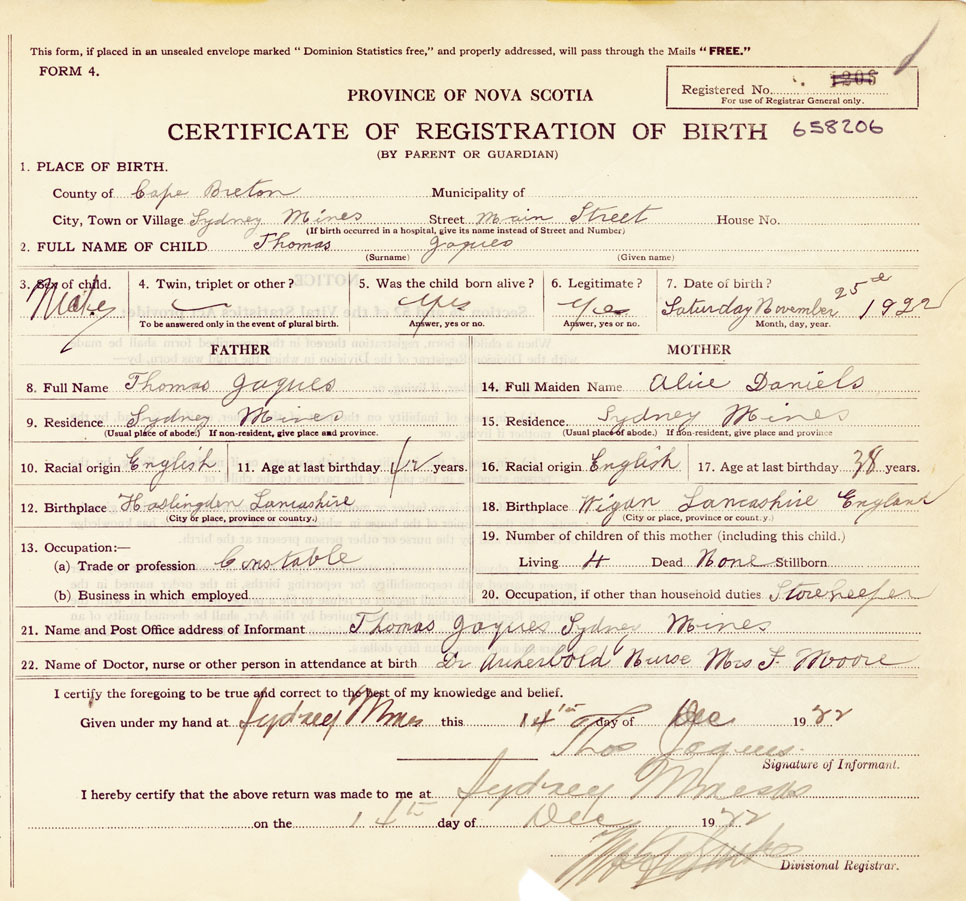 This form, if placed in an unsealed envelope marked "Dominion Statistics free," and properly addressed, will pass through the Mails "FREE."
FORM 4.
Registered No. 1206
For use of Registrar General only.
PROVINCE OF NOVA SCOTIA
CERTIFICATE OF REGISTRATION OF BIRTH 658206
(BY PARENT OR GUARDIAN)
1. PLACE OF BIRTH.
County of Cape Breton Municipality of
City, Town or Village Sydney Mines Street Main Street House No.
(If birth occurred in a hospital, give its name instead of Street and Number)
2. FULL NAME OF CHILD Thomas Jaques
(Surname) (Given name)
3. Sex of child. 4. Twin, triplet or other? 5. Was the child born alive? 6. Legitimate? 7. Date of birth?
Yes Yes Saturday November 25th 1922
To be answered only in the event of plural birth. Answer, yes or no. Answer, yes or no. Month, day, year.
FATHER MOTHER
8. Full Name Thomas Jaques 14. Full Maiden Name Alice Daniels
9. Residence Sydney Mines 15. Residence Sydney Mines
(Usual place of abode.) If non-resident, give place and province. (Usual place of abode.) If non-resident, give place and province
10. Racial origin English 11. Age at last birthday 42 years. 16. Racial origin English 17. Age at last birthday 38 years.
12. Birthplace Haslingden Lancashire 18. Birthplace Wigan Lancashire England
(City or place, province or country.) (City or place, province or count.y.)
13. Occupation:— 19. Number of children of this mother (including this child.)
(a) Trade or profession Constable Living 4 Dead None Stillborn
(b) Business in which employed 20. Occupation, if other than household duties Storekeeper
21. Name and Post Office address of Informant Thomas Jaques Sydney Mines
22. Name of Doctor, nurse or other person in attendance at birth Dr Archerbold Nurse Mrs F. Moore
I certify the foregoing to be true and correct to the best of my knowledge and belief.
Given under my hand at Sydney Mines this 14th day of Dec 1922
Thos Jaques.
Signature of Informant.
I hereby certify that the above return was made to me at Sydney Mines
on the 14th day of Dec 1922
Divisional Registrar.